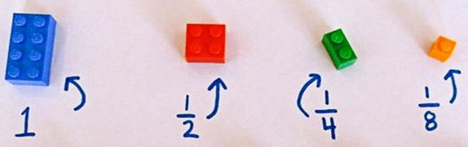 1
1/2
1/4
1/8